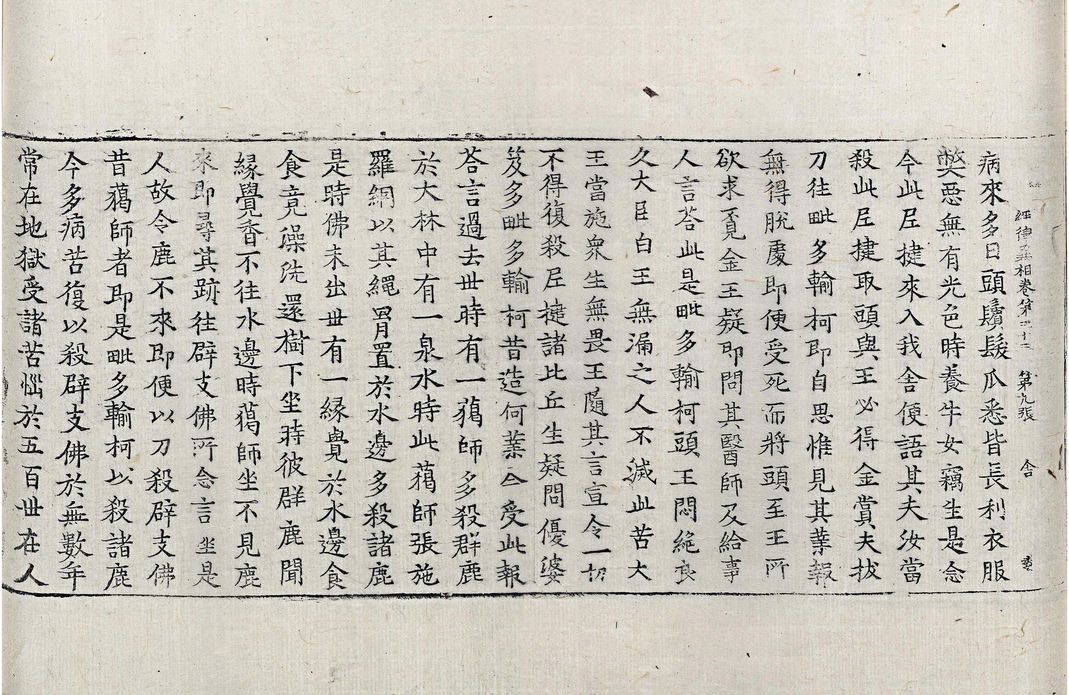 經律異相卷第三十三　第九張　舍
病來多日頭鬚髮爪悉皆長利衣服
弊惡無有光色時養牛女竊生是念
今此尼揵來入我舍便語其夫汝當
殺此尼揵取頭與王必得金賞夫拔
刀往毗多輸柯即自思惟見其業報
無得脫處即便受死而將頭至王所
欲求覓金王疑即問其醫師及給事
人言荅此是毗多輸柯頭王悶絶良
久大臣白王無漏之人不滅此苦大
王當施衆生無畏王隨其言宣令一切
不得復殺尼揵諸比丘生疑問優婆
笈多毗多輸柯昔造何業今受此報
荅言過去世時有一獦師多殺群鹿
於大林中有一泉水時此獦師張施
羅網以其繩罥置於水邊多殺諸鹿
是時佛未出世有一緣覺於水邊食
食竟澡洗還樹下坐時彼群鹿聞
緣覺香不往水邊時獦師坐不見鹿
來即尋其跡往辟支佛所念言坐是
人故令鹿不來即便以刀殺辟支佛
昔獦師者即是毗多輸柯以殺諸鹿
今多病苦復以殺辟支佛於無數年
常在地獄受諸苦惱於五百世在人